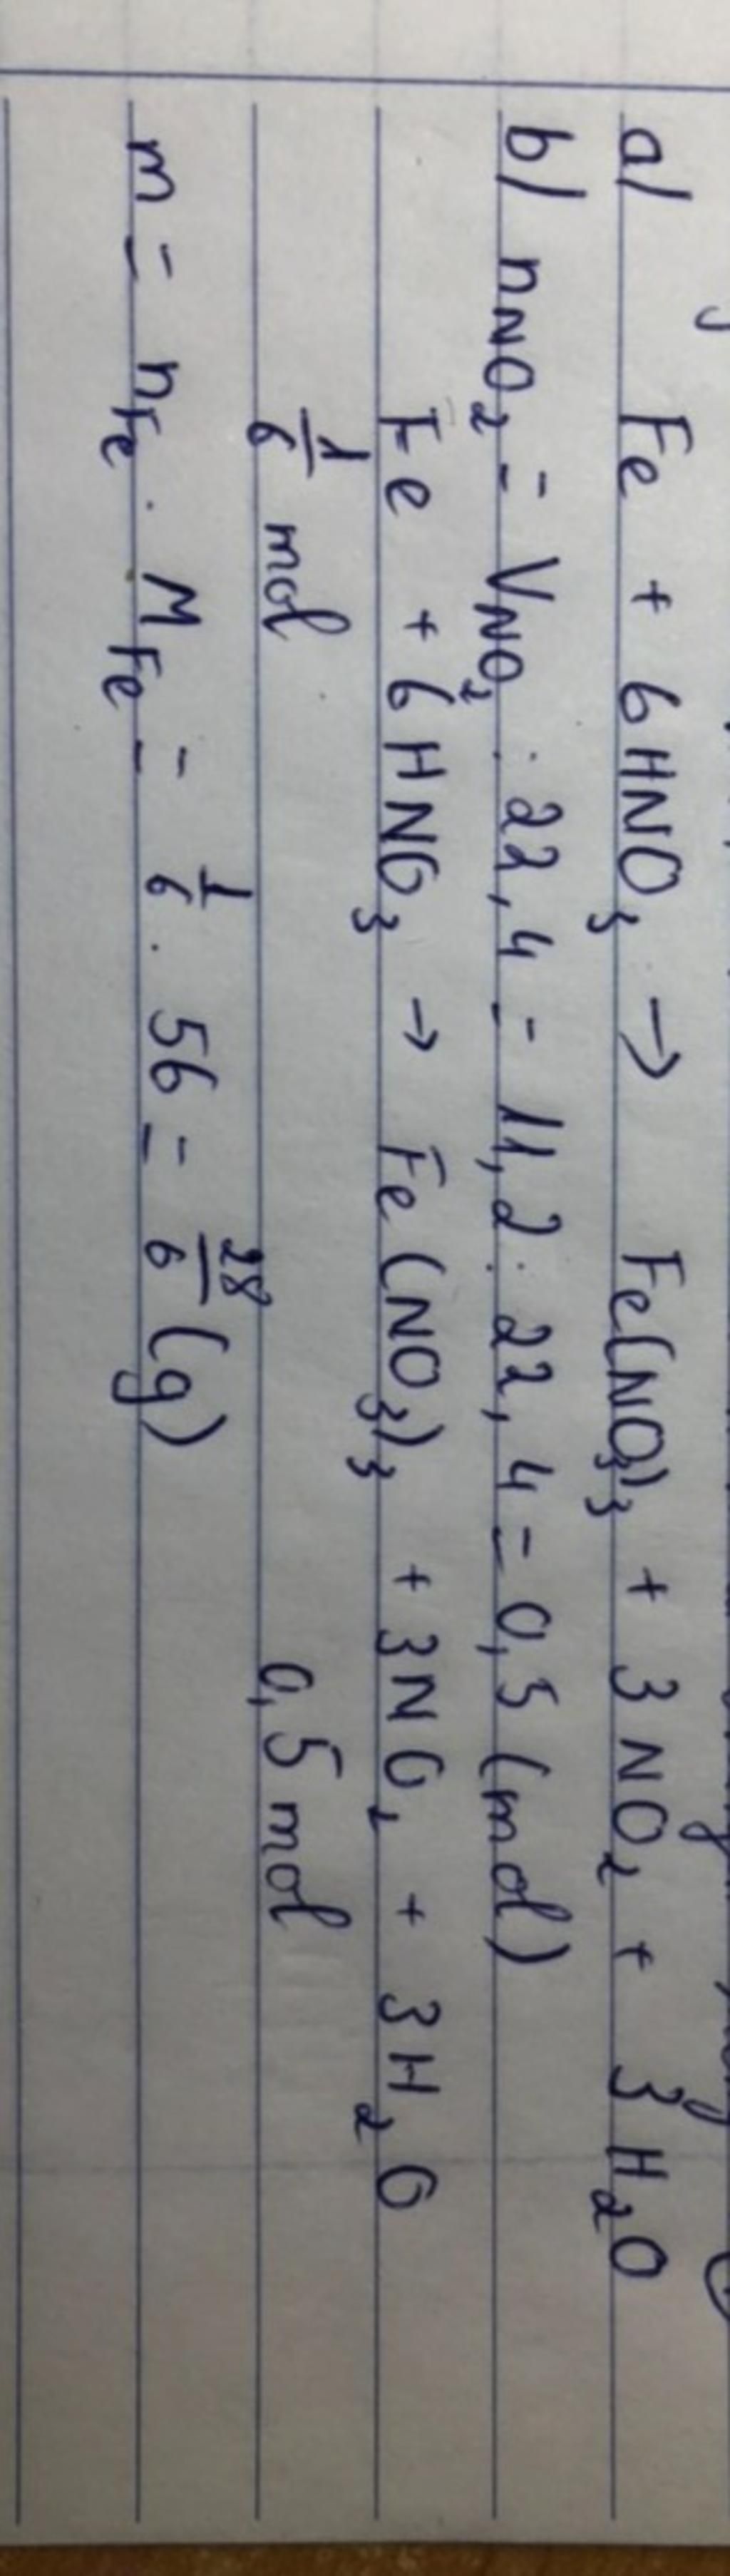 a/ Fe + 6HNO₃ → Fe(NO₃)₃ + 3NO₂ + 3H₂O
b/ nNO₂ = VNO₂ : 22,4 = 11,2 : 22,4 = 0,5 (mol)
Fe + 6HNO₃ → Fe(NO₃)₃ + 3NO₂ + 3H₂O
1/6 mol 0,5 mol
m = nFe . MFe = 1/6 . 56 = 28/6 (g)